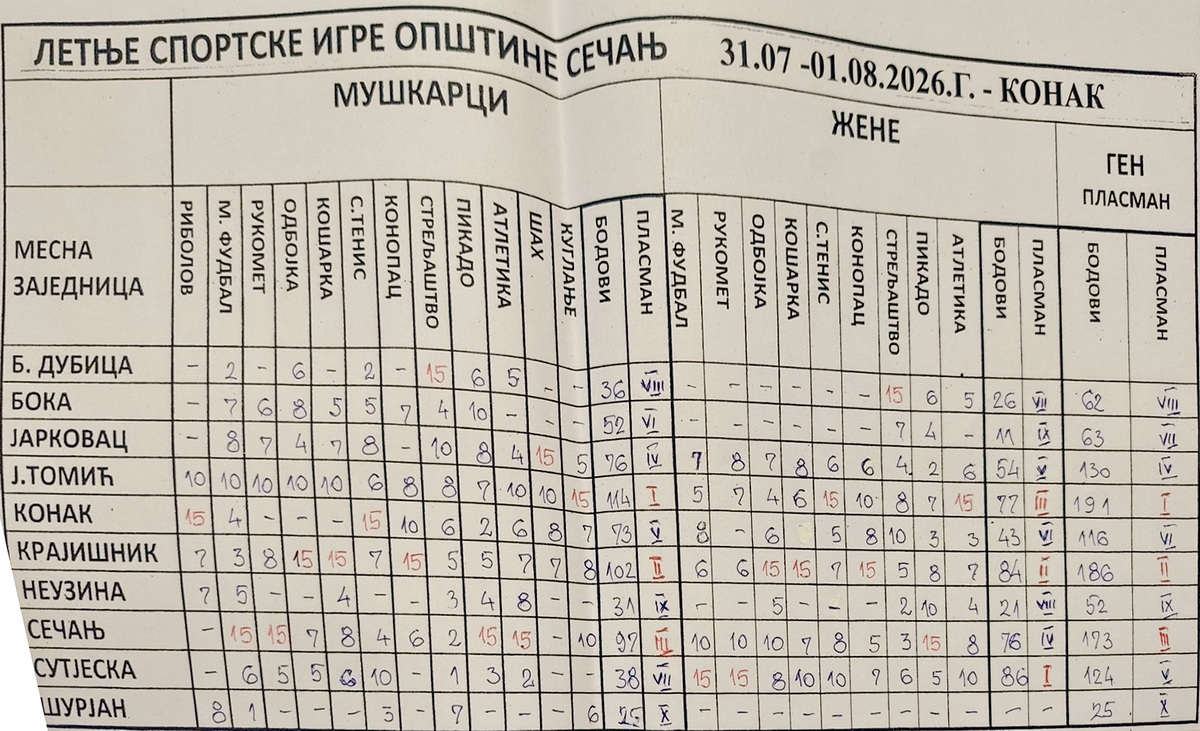 ЛЕТЊЕ СПОРТСКЕ ИГРЕ ОПШТИНЕ СЕЧАЊ 31.07 -01.08.2026.Г. - КОНАК
МУШКАРЦИ ЖЕНЕ ГЕН ПЛАСМАН
МЕСНА ЗАЈЕДНИЦА РИБОЛОВ М. ФУДБАЛ РУКОМЕТ ОДБОЈКА КОШАРКА С.ТЕНИС КОНОПАЦ СТРЕЉАШТВО ПИКАДО АТЛЕТИКА ШАХ КУГЛАЊЕ БОДОВИ ПЛАСМАН М. ФУДБАЛ РУКОМЕТ ОДБОЈКА КОШАРКА С.ТЕНИС КОНОПАЦ СТРЕЉАШТВО ПИКАДО АТЛЕТИКА БОДОВИ ПЛАСМАН БОДОВИ ПЛАСМАН
Б. ДУБИЦА - 2 - 6 - 2 - 15 6 5 - - 36 VIII - - - - - - 15 6 5 26 VII 62 VIII
БОКА - 7 6 8 5 5 7 4 10 - - - 52 VI - - - - - - 7 4 - 11 IX 63 VII
ЈАРКОВАЦ - 8 7 4 7 8 - 10 8 4 15 5 76 IV 7 8 7 8 6 6 4 2 6 54 V 130 IV
Ј.ТОМИЋ 10 10 10 10 10 6 8 8 7 10 10 15 114 I 5 7 4 6 15 10 8 7 15 77 III 191 I
КОНАК 15 4 - - - 15 10 6 2 6 8 7 73 V 8 - 6 5 8 10 3 3 43 VI 116 VI
КРАЈИШНИК 7 3 8 15 15 7 15 5 5 7 7 8 102 II 6 6 15 15 7 15 5 8 7 84 II 186 II
НЕУЗИНА 7 5 - - 4 - - 3 4 8 - - 31 IX - - 5 - - - 2 10 4 21 VIII 52 IX
СЕЧАЊ - 15 15 7 8 4 6 2 15 15 - 10 97 III 10 10 10 7 8 5 3 15 8 76 IV 173 III
СУТЈЕСКА - 6 5 5 6 10 - 1 3 2 - - 38 VII 15 15 8 10 10 7 6 5 10 86 I 124 V
ШУРЈАН 8 1 - - - 3 - 7 - - - 6 25 X - - - - - - - - - - - 25 X